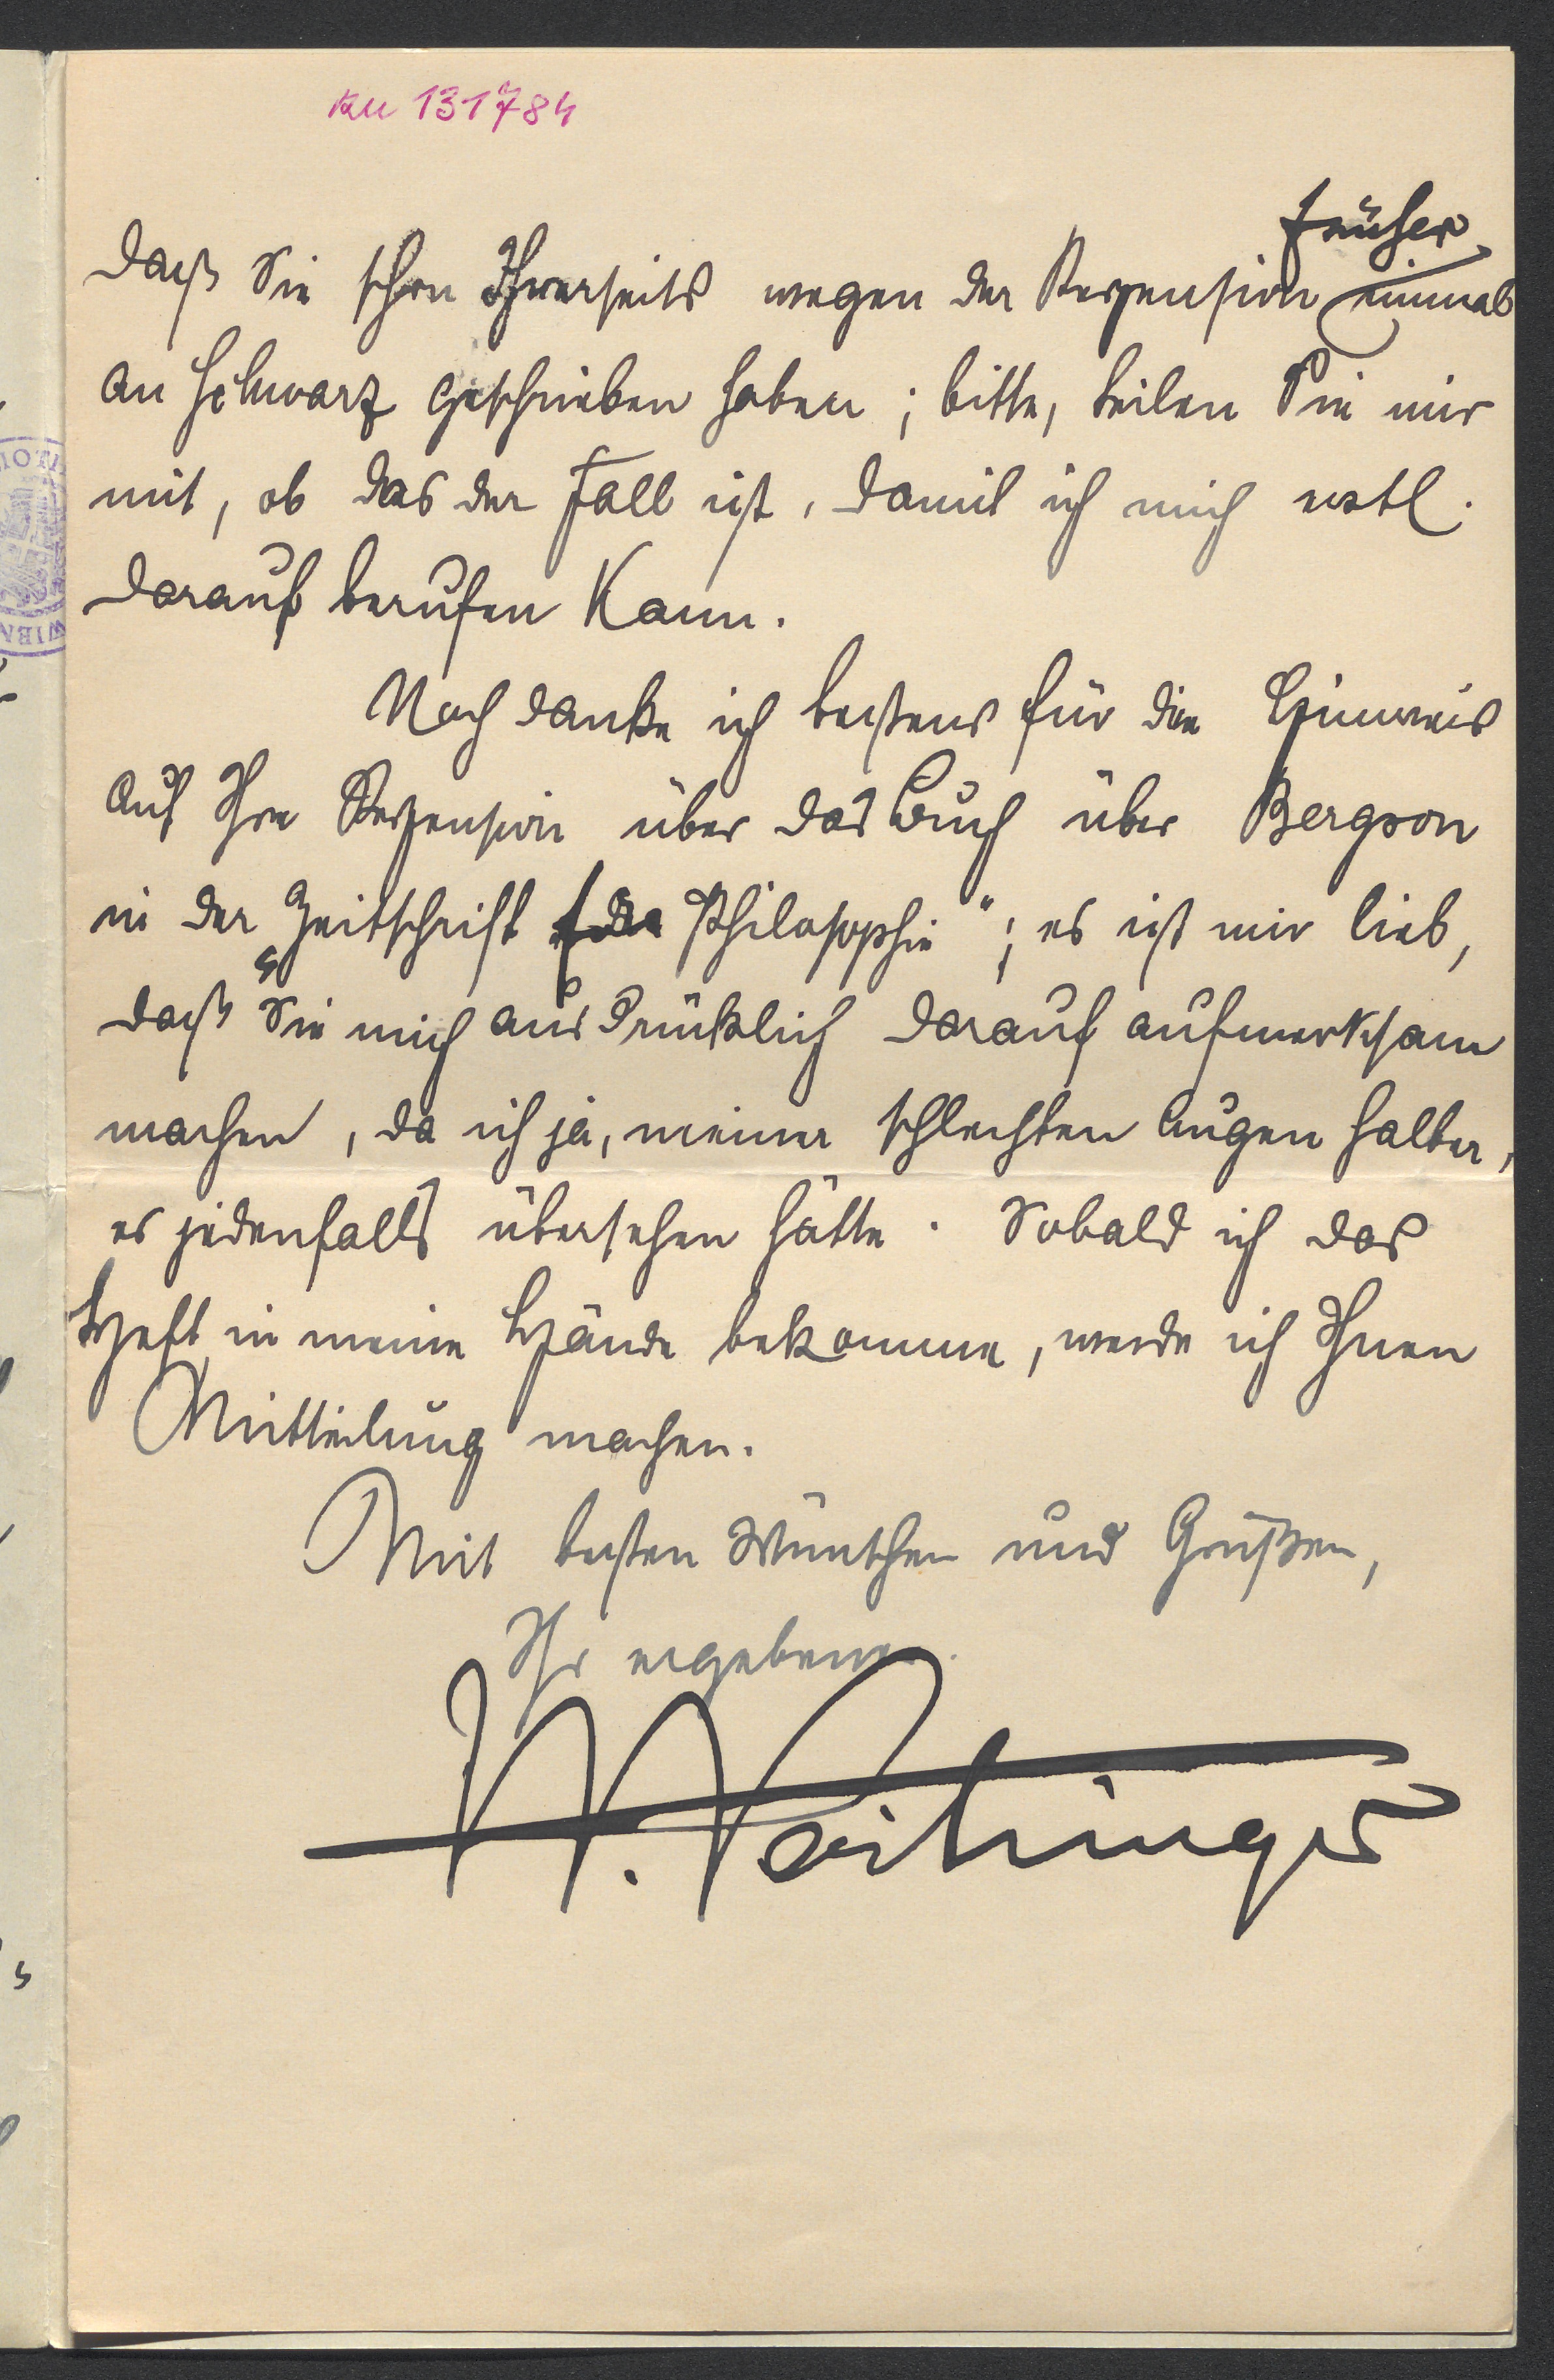 KU 131784
früher
daß Sie schon Ihrerseits wegen der Rezension einmal
an Schwarz geschrieben haben; bitte, teilen Sie mir
mit, ob das der Fall ist, damit ich mich evtl.
darauf berufen kann.
Noch danke ich bestens für die Hinweis
auf Ihre Rezension über das Buch über Bergson
in der „Zeitschrift f. d. Philosophie“; es ist mir lieb,
daß Sie mich ausdrücklich darauf aufmerksam
machen, da ich ja, meiner schlechten Augen halber,
es jedenfalls übersehen hätte. Sobald ich das
Heft in meine Hände bekomme, werde ich Ihnen
Mitteilung machen.
Mit besten Wünschen und Grüßen,
Ihr ergebener
H. Vaihinger